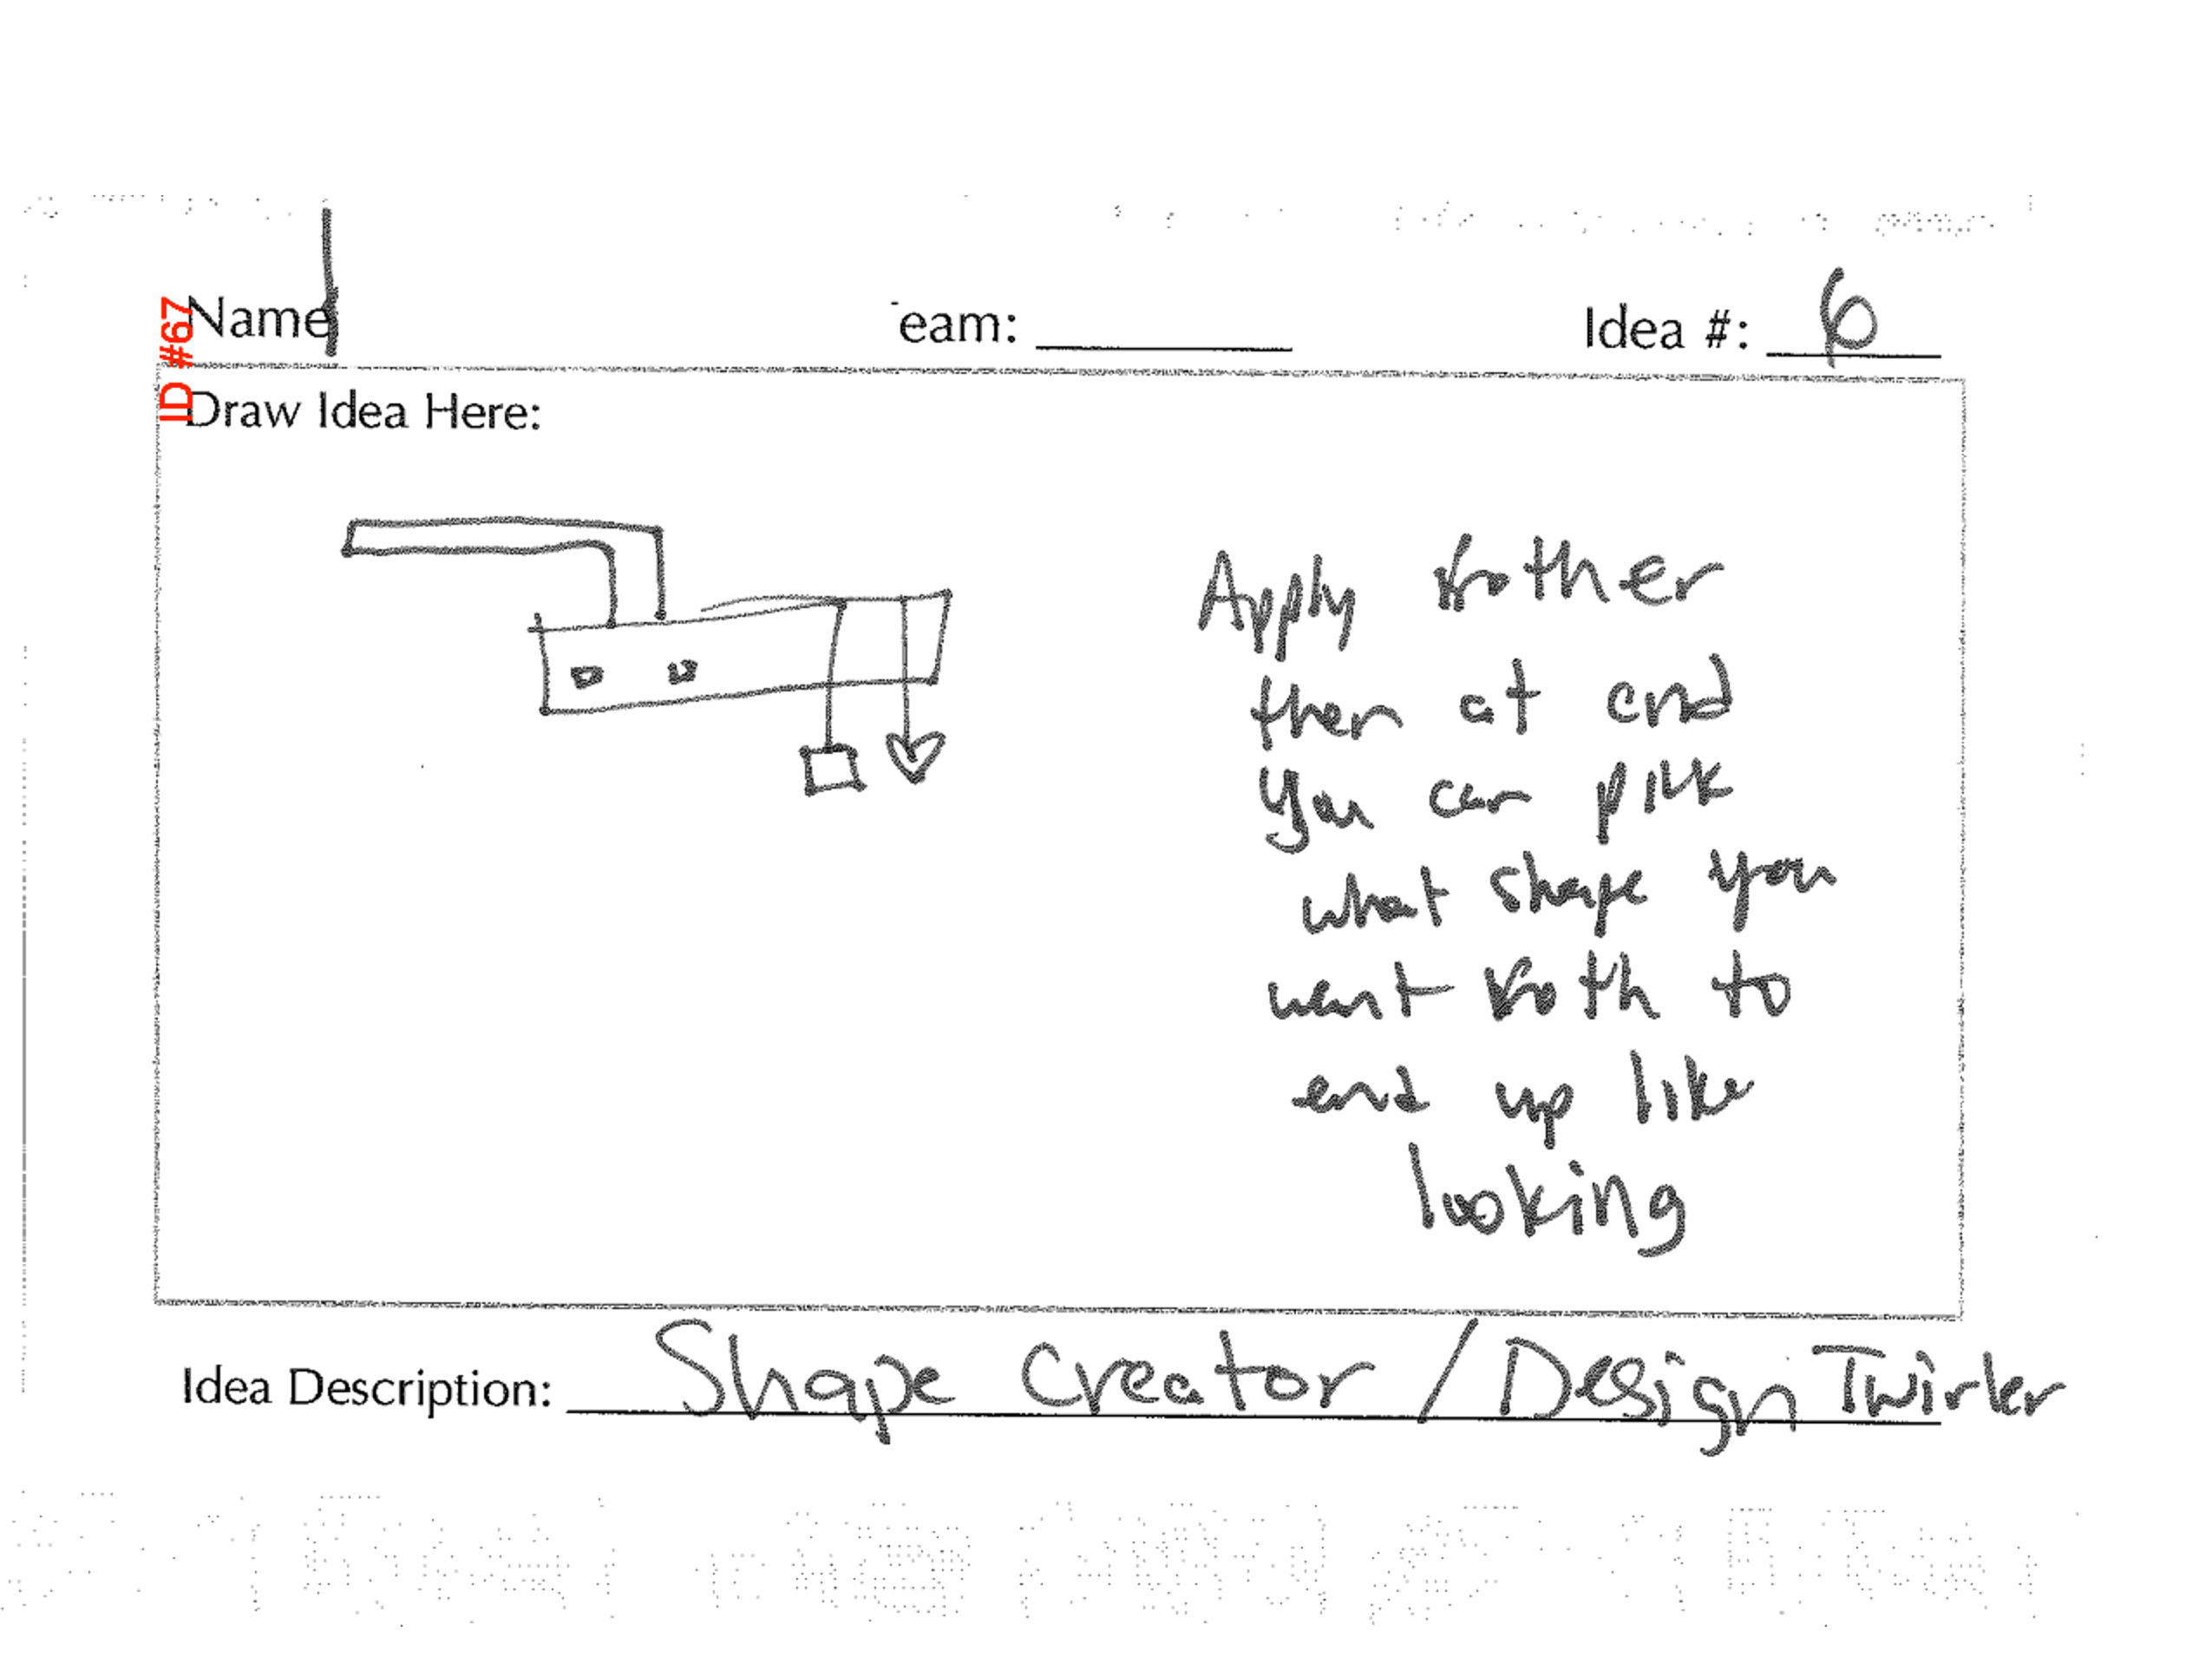 ID #67
Name
eam:
Idea #: 6
Draw Idea Here:
Apply frother
then at end
you can pick
what shape you
want froth to
end up like
looking
Idea Description: Shape Creator / Design Twirler